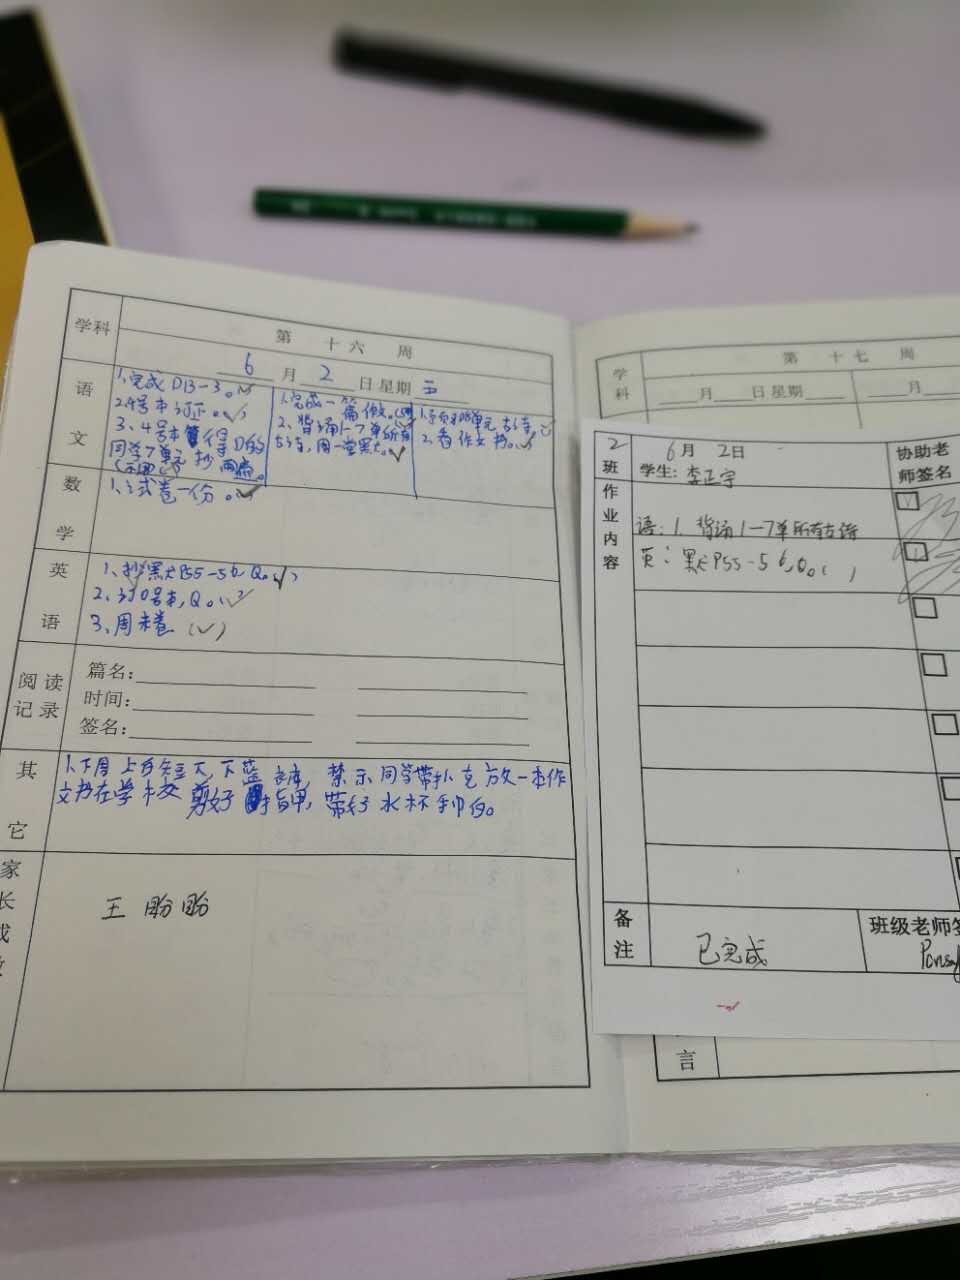 学科
第 十 六 周
6月2日星期五
语文
1.完成D13-3。
2.4号本订正。
3、4号本 得D的
同学7单元抄
1.完成一篇
2、背诵1-7单所有
古诗,周一堂默。
2.看作文书。
数学
1、试卷一份。
英语
1、抄默P55-56,Q。
2、订0号本,Q。
3、周末卷(✓)
阅读记录
篇名:
时间:
签名:
其它
1.下周一上白短T,下蓝裤,禁示同学带扑克,放一本作
文书在学校,剪好指甲,带好水杯手巾。
家长
王盼盼
学科
第 十 七 周
月 日星期
月
2班
6月2日
学生:李正宇
协助老师签名
作业内容
语:1.背诵1—7单所有古诗
英:默P55-56,Q。( )
备注
已完成
班级老师签
言